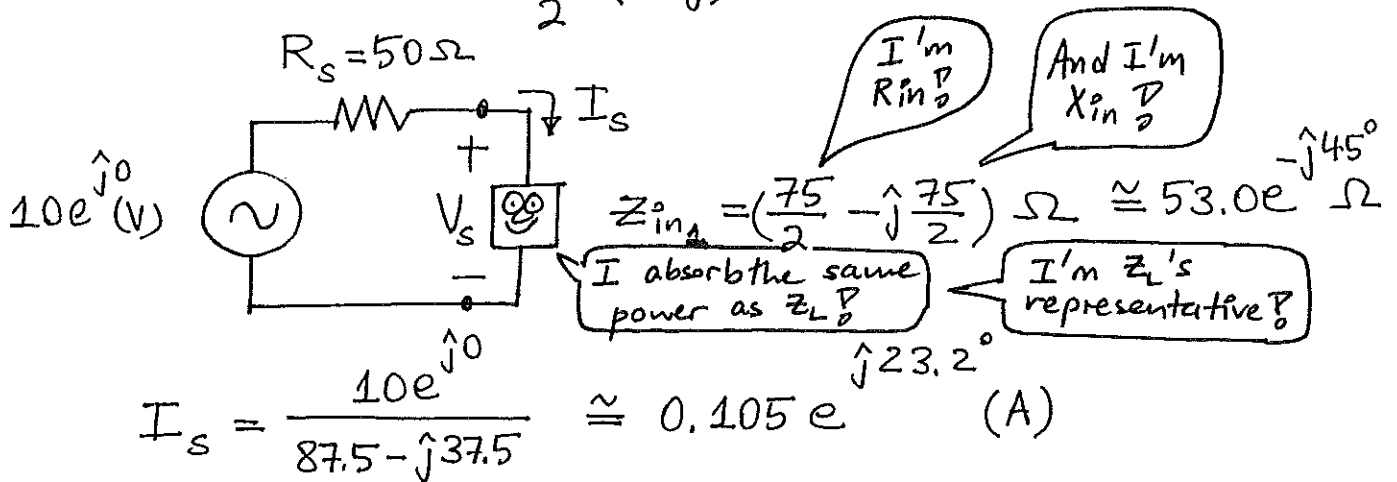 2
R_s = 50Ω
I'm
Rin!
And I'm
Xin!
I_s
+
10e^{ĵ0} (V)
V_s
Z_{in_1} = (75/2 - ĵ 75/2) Ω ≅ 53.0e^{-ĵ45°} Ω
−
I absorb the same
power as Z_L!
I'm Z_L's
representative!
I_s = 10e^{ĵ0} / (87.5 - ĵ37.5) ≅ 0.105 e^{ĵ23.2°} (A)